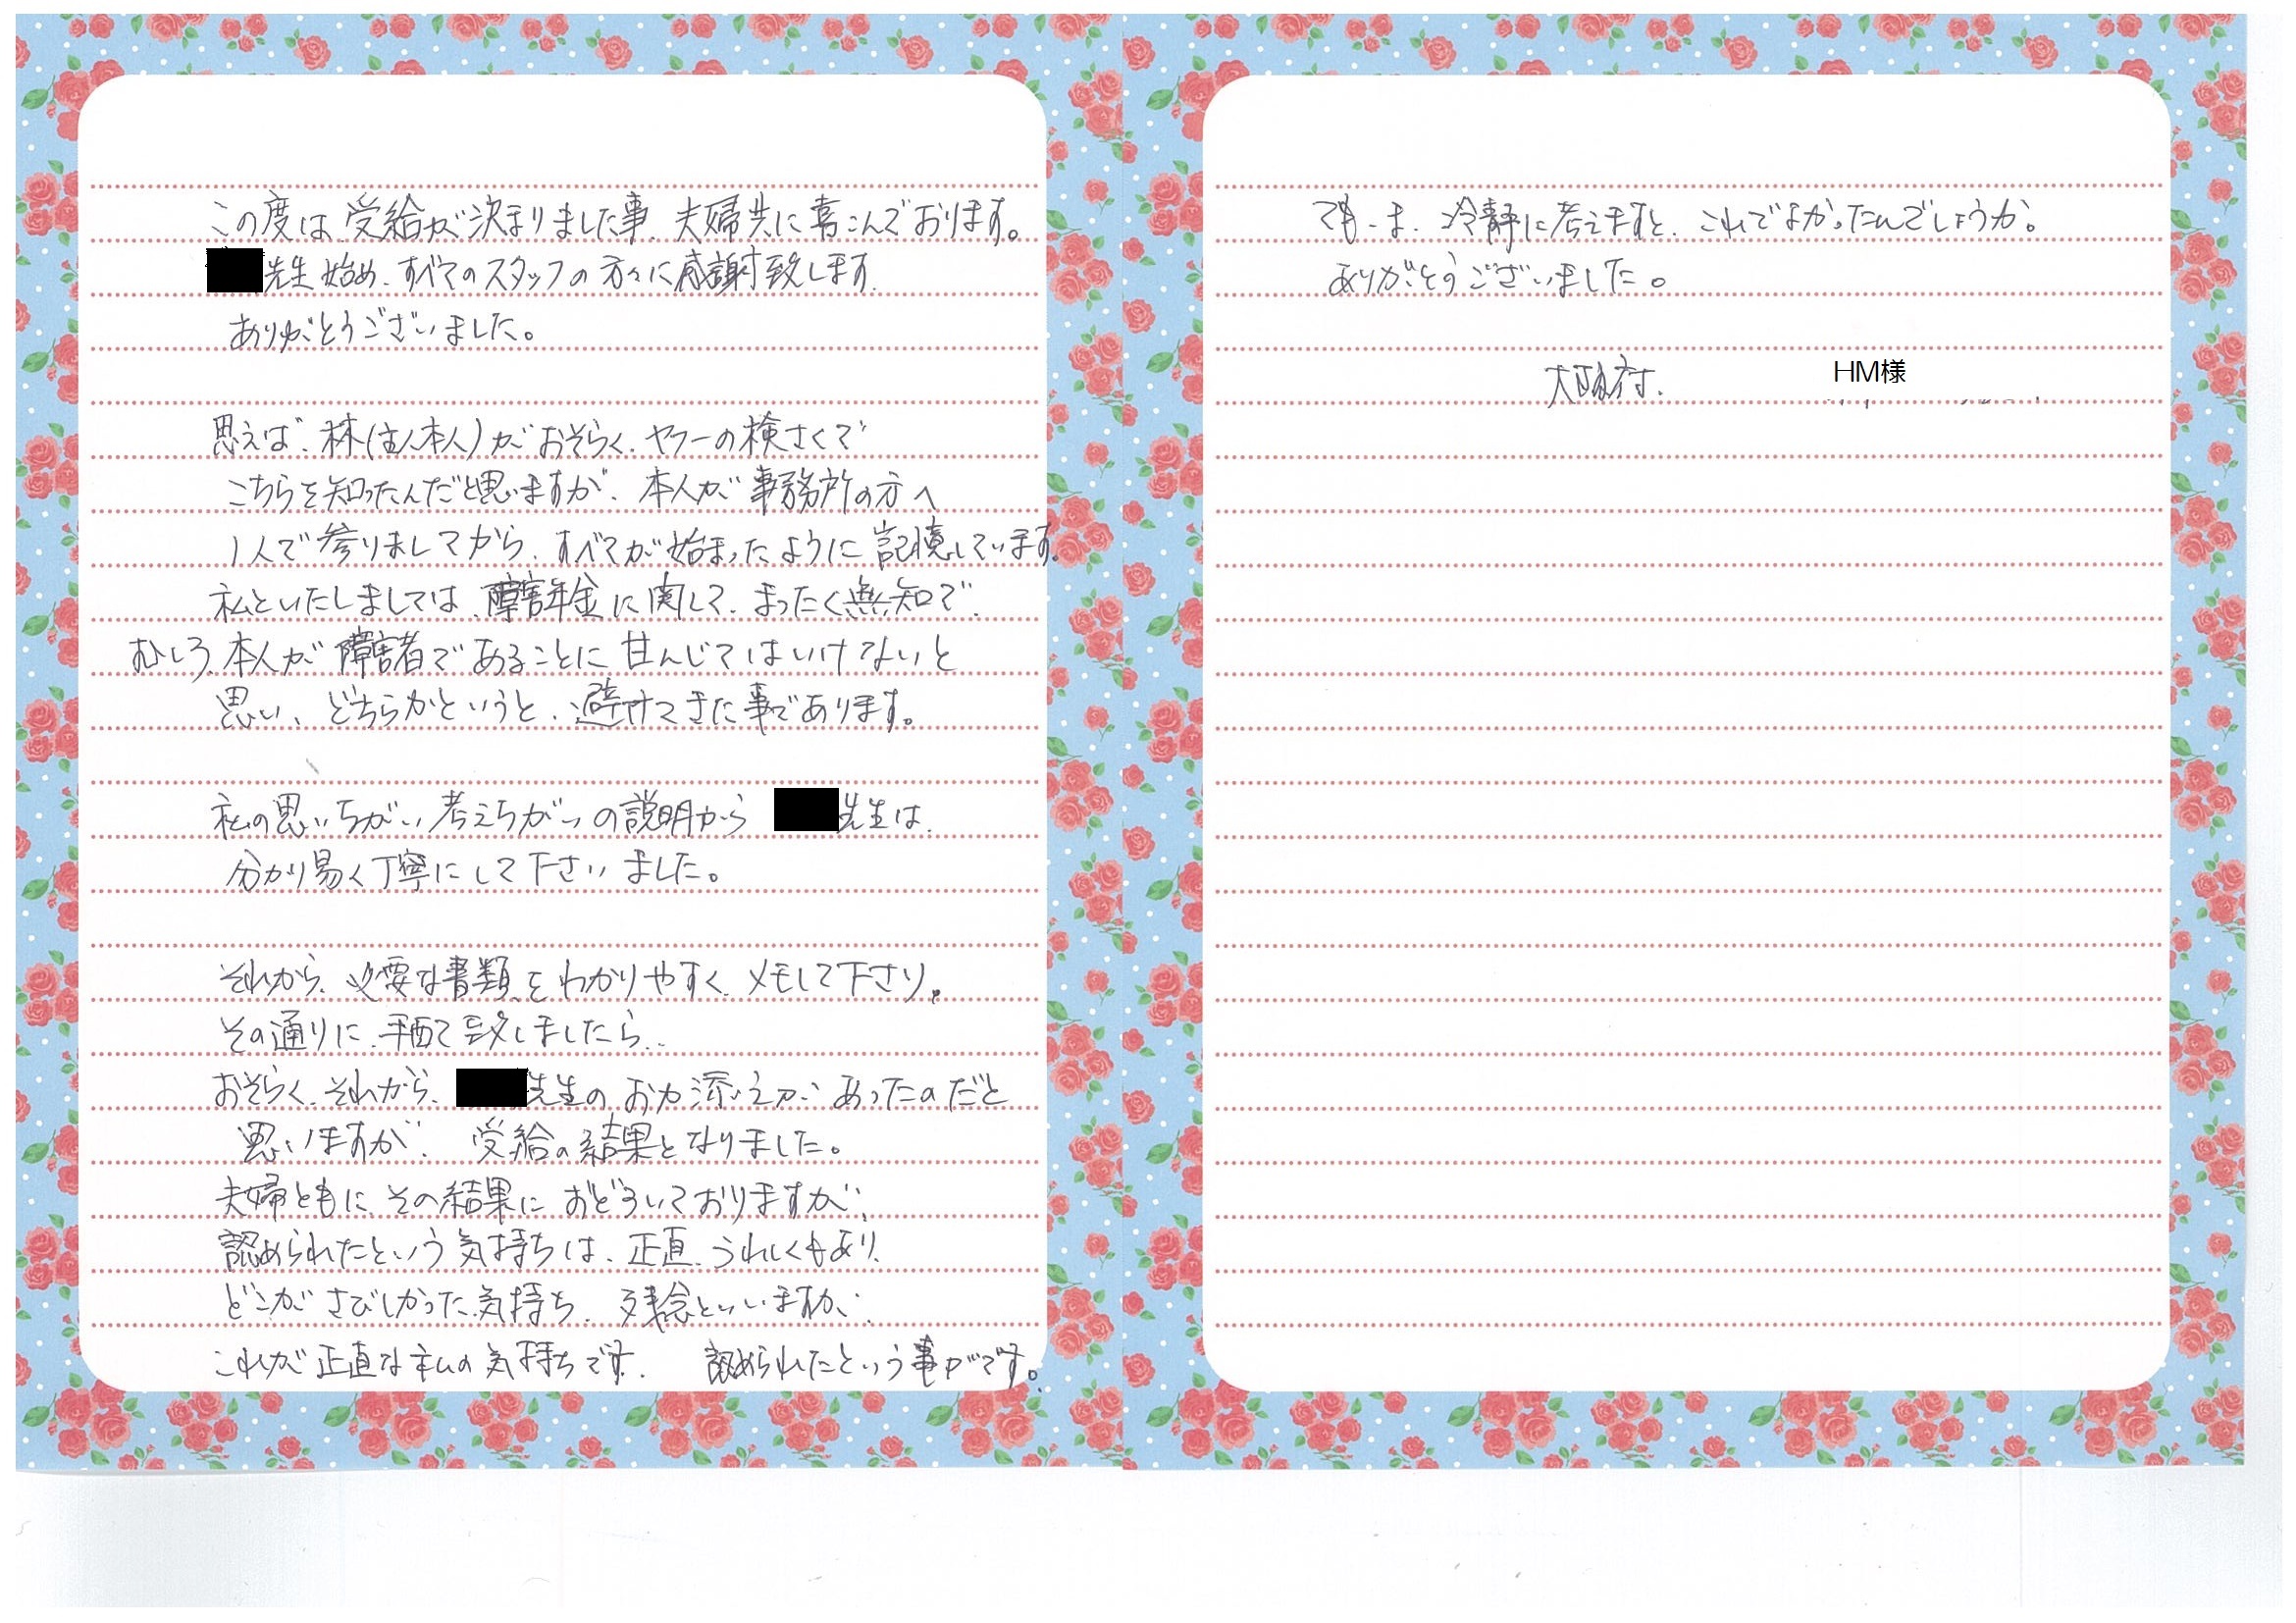 この度は、受給が決まりました事、夫婦共に喜こんでおります。
先生始め、すべてのスタッフの方々に感謝致します。
ありがとうございました。
思えば、(主人本人)がおそらく、ヤフーの検さくで
こちらを知ったんだと思いますが、本人が事務所の方へ
1人で参りましてから、すべてが始まったように記憶しています。
私といたしましては、障害年金に関して、まったく無知で、
むしろ、本人が障害者であることに甘んじてはいけないと
思い、どちらかというと、避けてきた事であります。
私の思いちがい、考えちがいの説明から 先生は、
分かり易く丁寧にして下さいました。
それから、必要な書類をわかりやすく、メモして下さり。
その通りに、手配て致しましたら..
おそらく、それから、先生のお力添えが、あったのだと
思いますが、受給の結果となりました。
夫婦ともに、その結果におどろいておりますが、
認められたという気持ちは、正直、うれしくもあり、
どこかさびしかった気持ち、残念といいますか、
これが正直な私の気持ちです。 認められたという事がです。
でも、ま、冷静に考えますと、これでよかったんでしょうか。
ありがとうございました。
大阪府. HM様